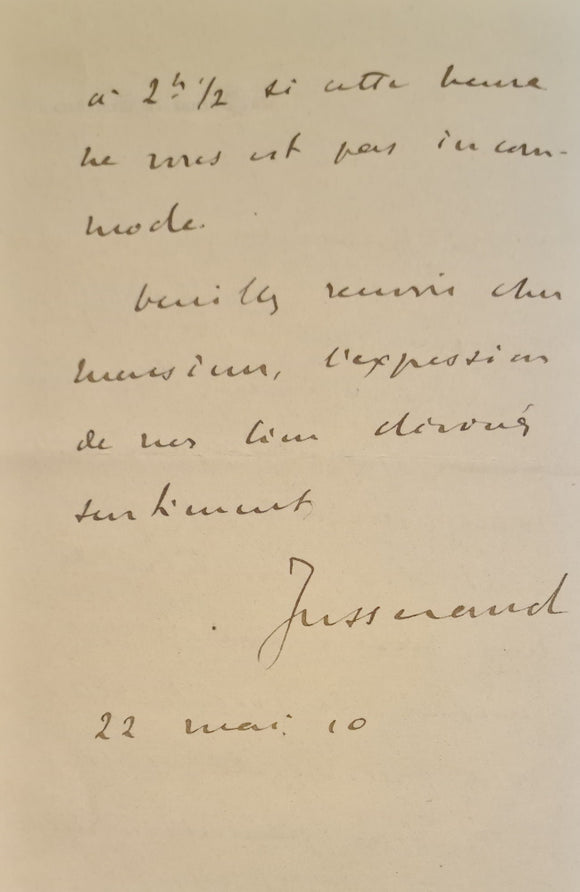 à 2h 1/2 si cette heure
ne vous est pas incom-
mode.
Veuillez recevoir cher
monsieur, l'expression
de mes bien dévoués
sentiments
Jusserand
22 mai 10